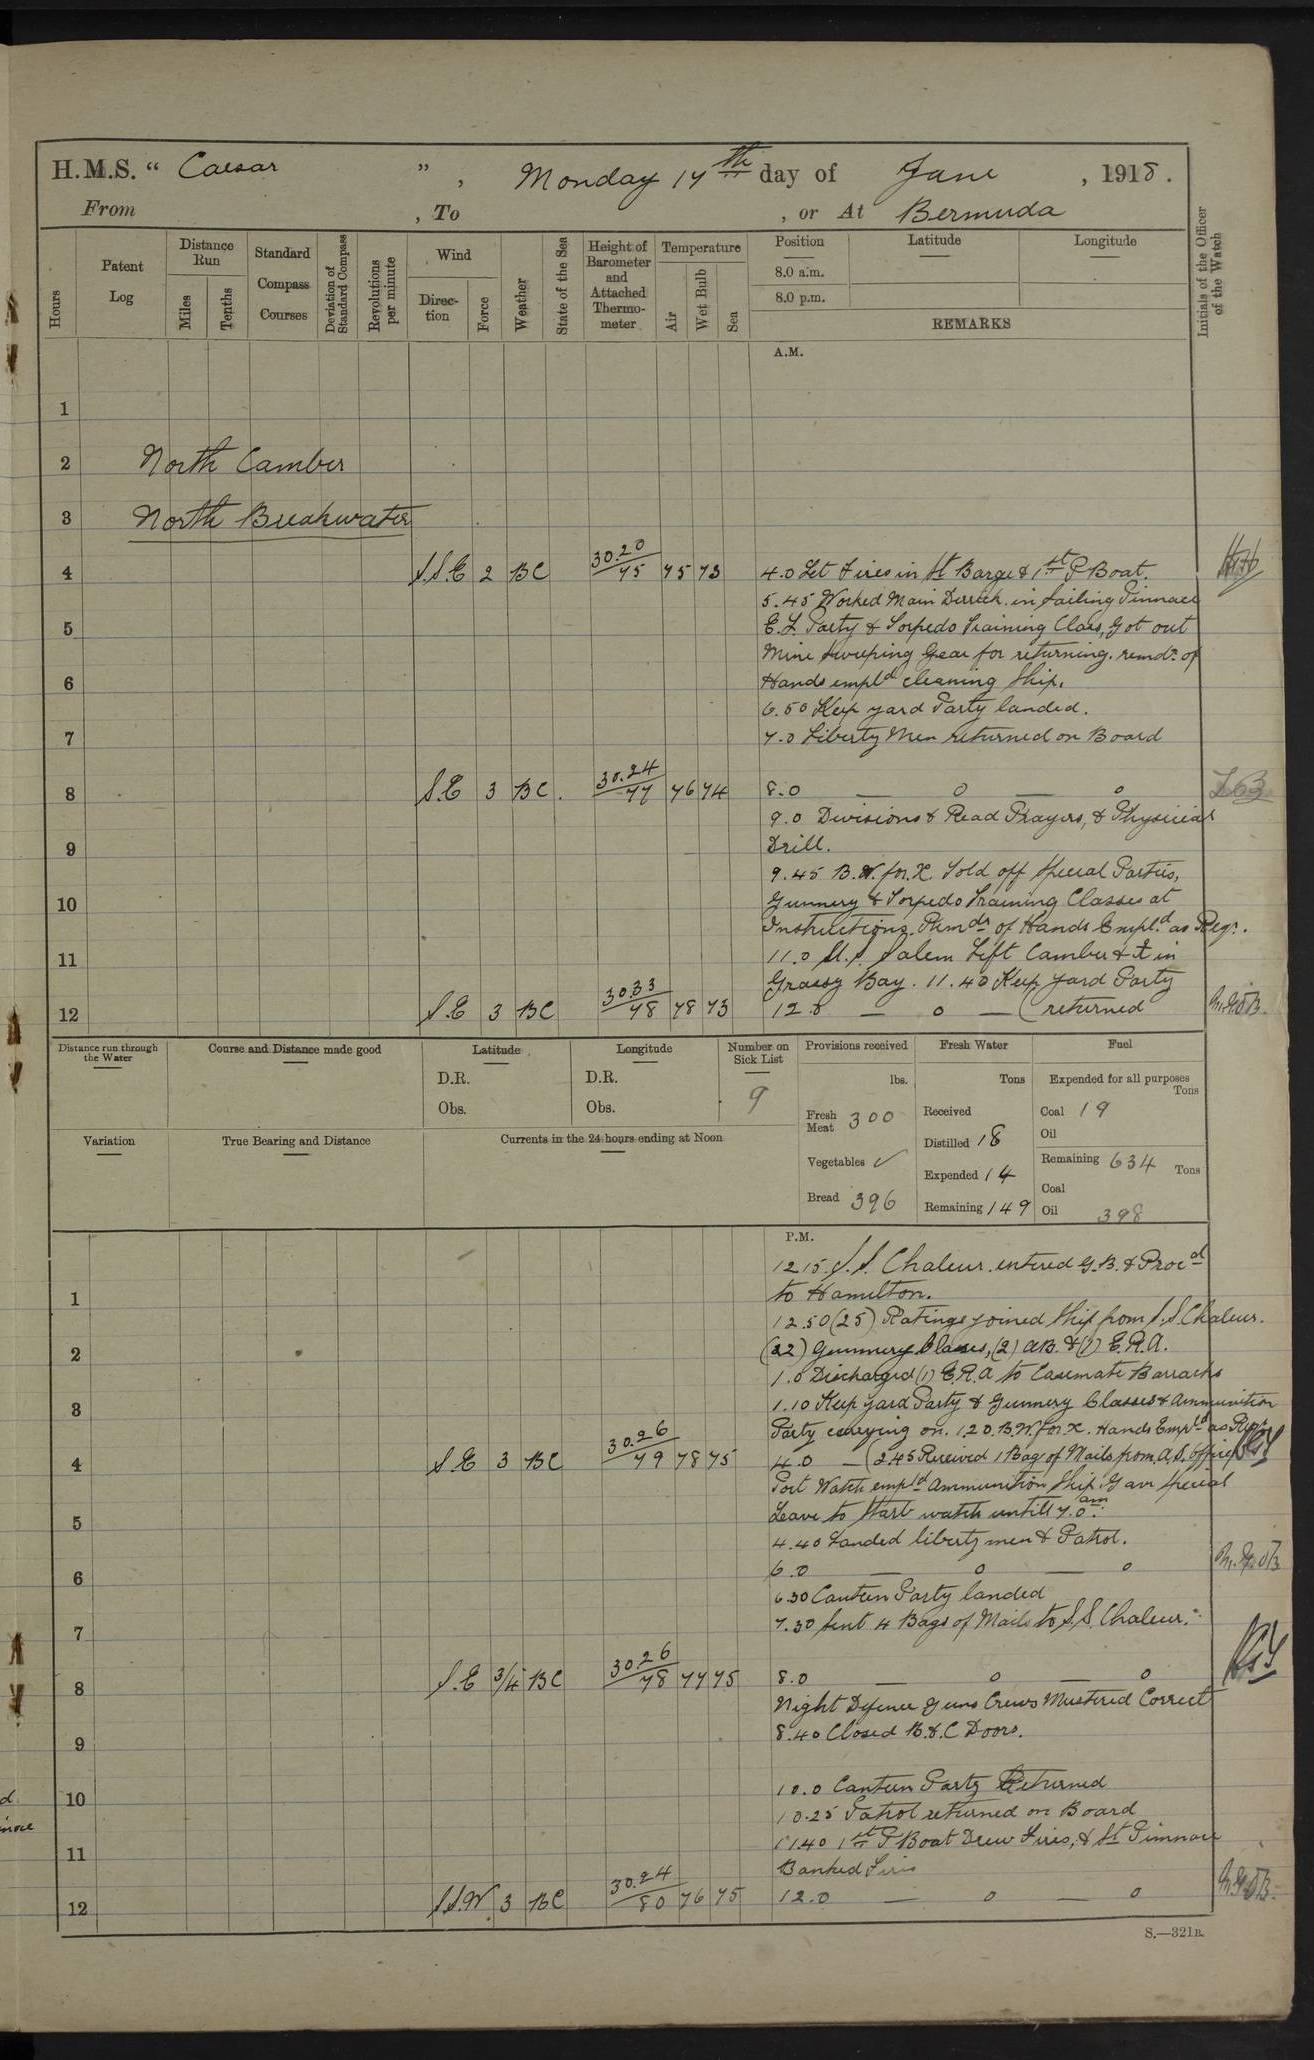 H.M.S. “ Caesar ” , Monday 17th day of June , 1918 .
From , To , or At Bermuda
Hours
Patent Log
Distance Run
Miles
Tenths
Standard Compass Courses
Deviation of Standard Compass
Revolutions per minute
Wind
Direction
Force
Weather
State of the Sea
Height of Barometer and Attached Thermometer
Temperature
Air
Wet Bulb
Sea
Position
Latitude
Longitude
8.0 a.m.
8.0 p.m.
REMARKS
Initials of the Officer of the Watch
A.M.
1
2 North Camber
3 North Breakwater
4 S.S.E 2 BC 30.20 75 75 73 4.0 Let Fires in St Barge & 1st P Boat.
5.45 Worked Main Derrick in Sailing Pinnace
5 E.L. Party & Torpedo Training Class, Got out
Mine Sweeping Gear for returning. remdr of
6 Hands empld cleaning Ship.
6.50 Keep yard Party landed.
7 7.0 Liberty Men returned on Board
8 S.E 3 BC. 30.24 77 76 74 8.0 — o — o
9.0 Divisions & Read Prayers, & Physical
9 Drill.
9.45 B.W. for X. Told off Special Parties,
10 Gunnery & Torpedo Training Classes at
Instructions. Remdr of Hands Empld as Reqr.
11 11.0 U.S. Salem Left Camber & in
Grassy Bay. 11.40 Keep yard Party
12 S.E 3 BC 30.33 78 78 73 12.0 — o — ( returned
Distance run through the Water
Course and Distance made good
Latitude
D.R.
Obs.
Longitude
D.R.
Obs.
Number on Sick List
9
Variation
True Bearing and Distance
Currents in the 24 hours ending at Noon
Provisions received
lbs.
Fresh Meat 300
Vegetables ✓
Bread 396
Fresh Water
Tons
Received
Distilled 18
Expended 14
Remaining 149
Fuel
Expended for all purposes
Tons
Coal 19
Oil
Remaining 634 Tons
Coal
Oil 398
P.M.
12.15. S.S. Chaleur. entered G.B. & Procd
1 to Hamilton.
12.50 (25) Ratings joined Ship from S.S. Chaleur.
2 (22) Gunnery Classes, (2) AB. & (1) E.R.A.
1.0 Discharged (1) E.R.A to Casemate Barracks
3 1.10 Keep yard Party & Gunnery Classes & Ammunition
Party carrying on. 1.20 B.W. for X. Hands Empld as Reqr
4 S.E 3 BC 30.26 79 78 75 4.0 — ( 2.45 Received 1 Bag of Mails from A.S. Office
Port Watch empld Ammunition Ship. Gave Special
5 Leave to Start watch untill 7.0 am.
4.40 Landed liberty men & Patrol.
6 6.0 — o — o
6.30 Canteen Party landed
7 7.30 Sent 4 Bags of Mails to S.S. Chaleur.
8 S.E 3/4 BC 30.26 78 77 75 8.0 — o — o
Night Defence Guns Crews Mustered Correct
9 8.40 Closed B.&.C Doors.
10 10.0 Canteen Party Returned
10.25 Patrol returned on Board
11 11.40 1st P Boat Drew Fires, & St Pinnace
Banked Fires
12 S.S.W. 3 BC 30.24 80 76 75 12.0 — o — o
S.—321B.